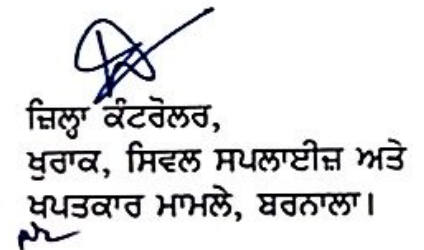 ਜ਼ਿਲ੍ਹਾ ਕੰਟਰੋਲਰ,
ਖੁਰਾਕ, ਸਿਵਲ ਸਪਲਾਈਜ਼ ਅਤੇ
ਖਪਤਕਾਰ ਮਾਮਲੇ, ਬਰਨਾਲਾ।